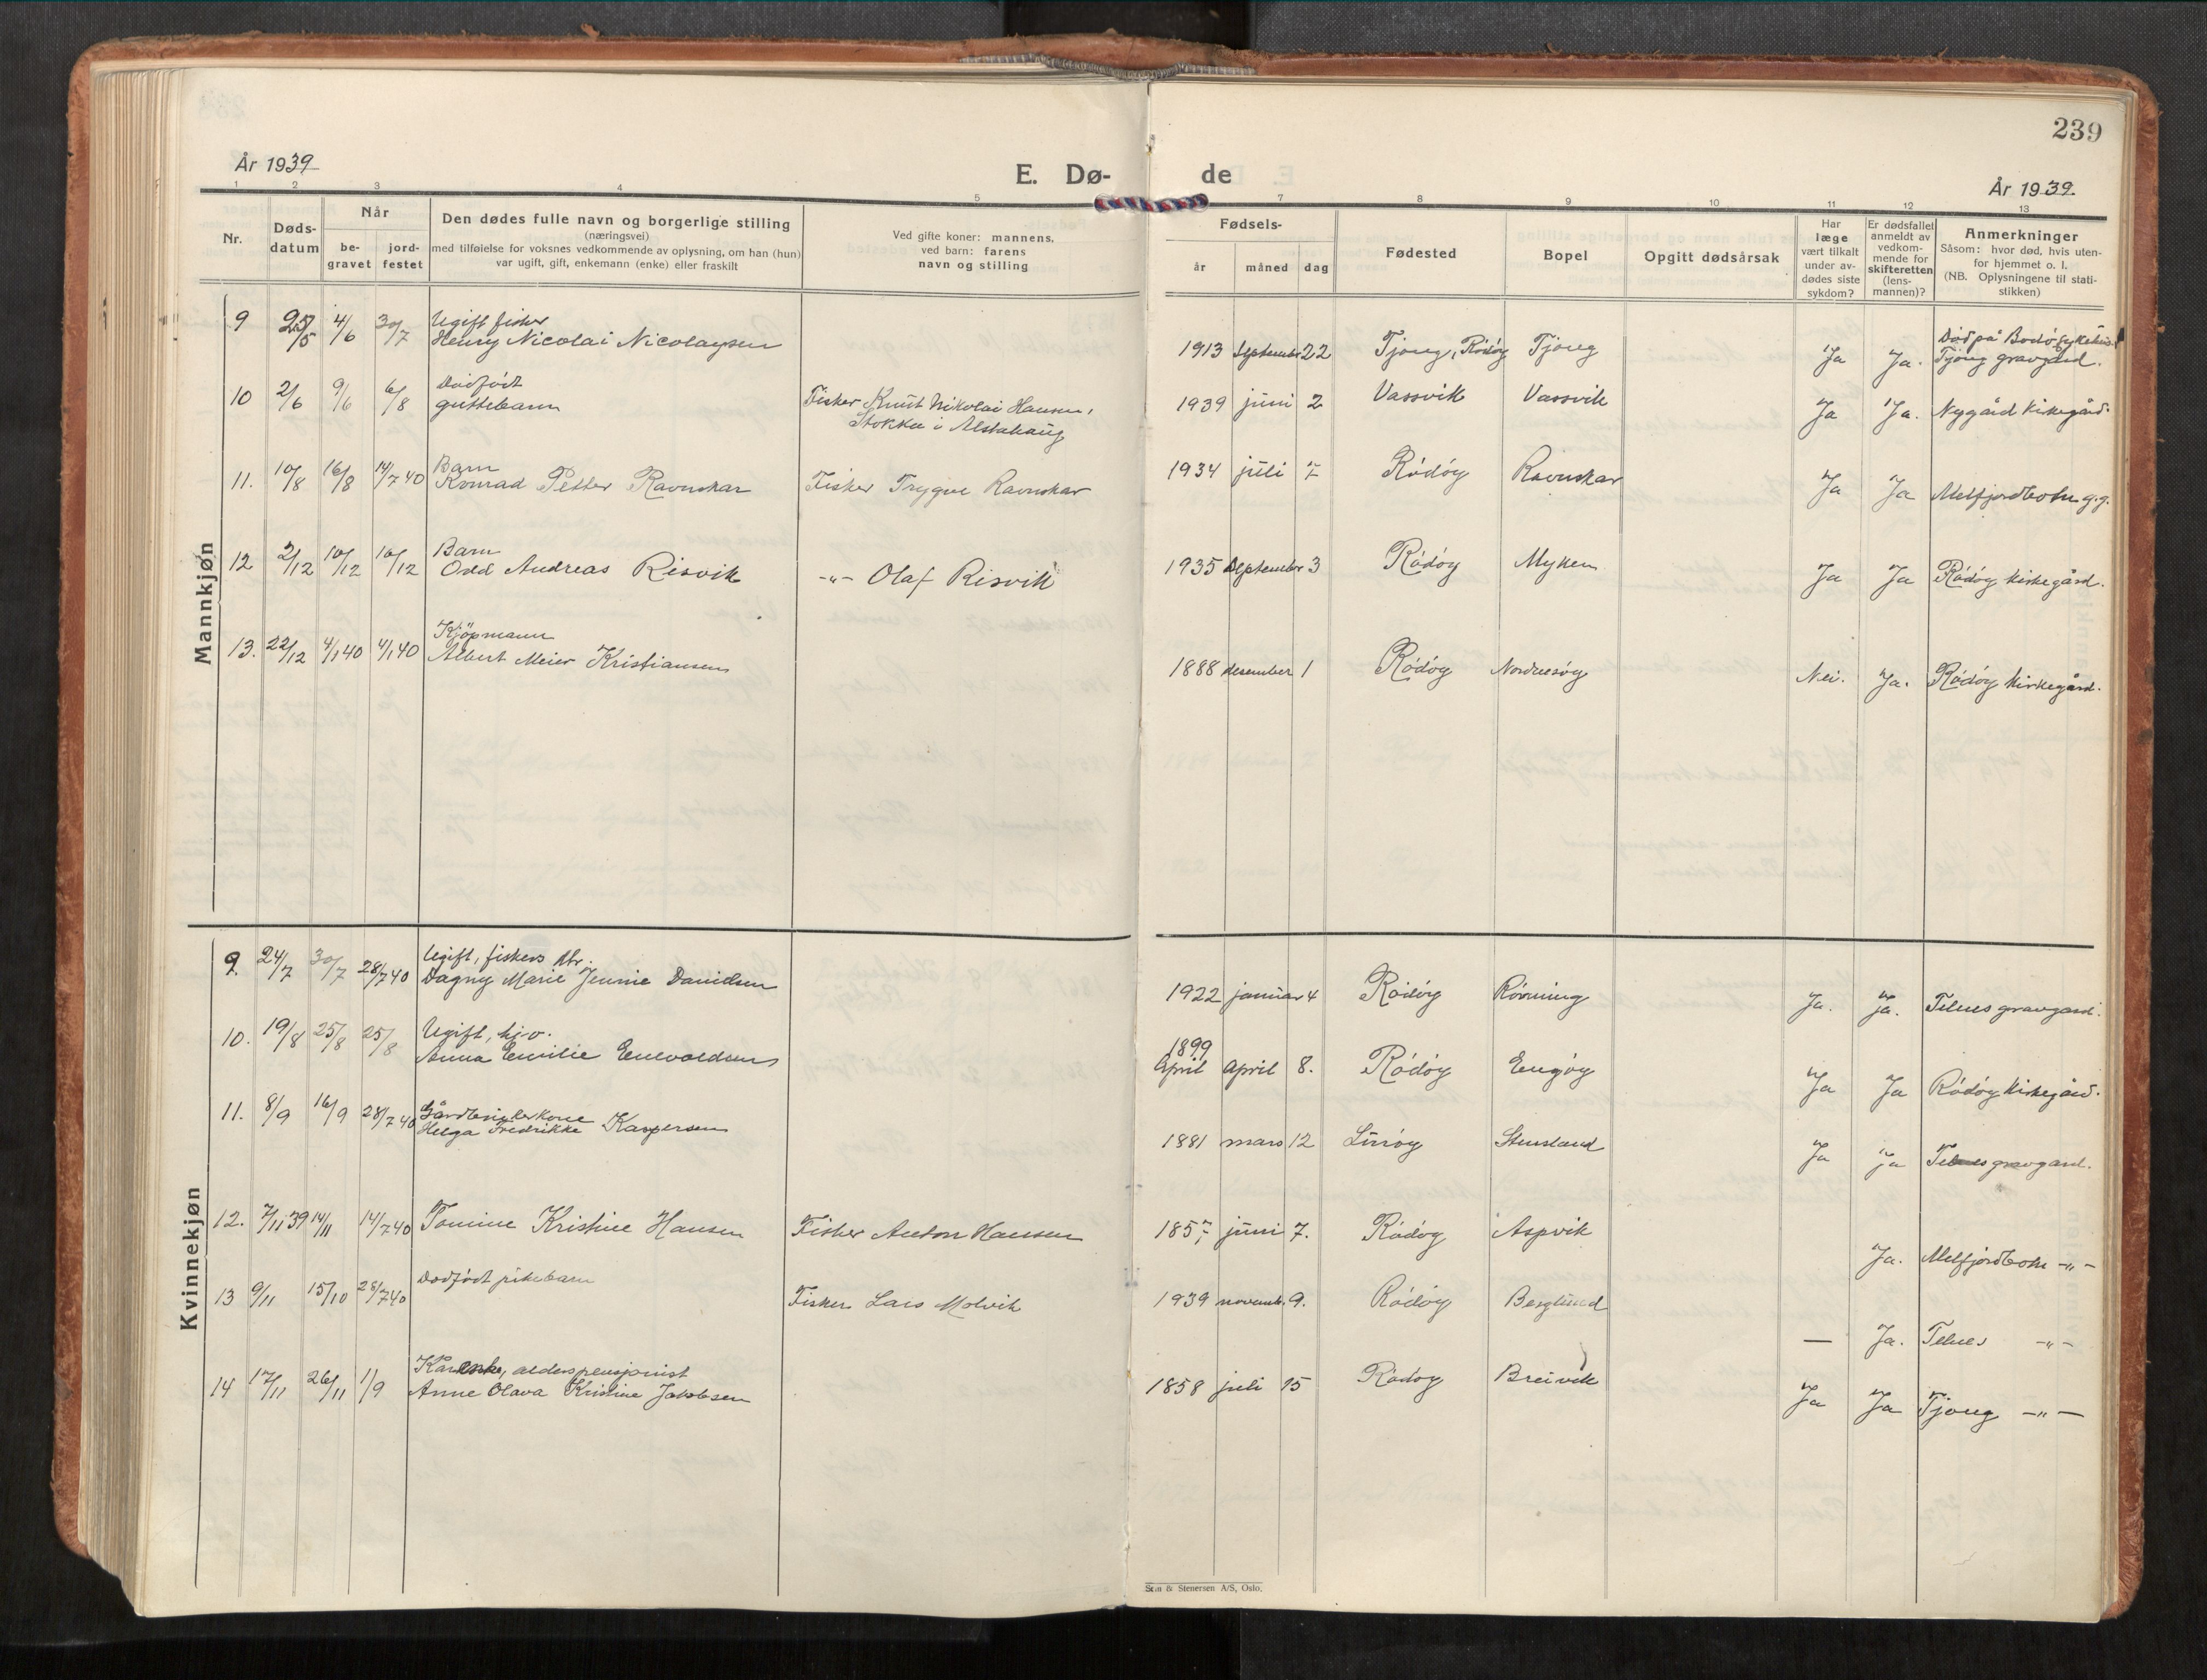 239
År 1939
E. Dø-
de
År 1939.
1 2 3 4 5 7 8 9 10 11 12 13
Nr.
Døds-
datum
Når
be-
gravet
jord-
festet
Den dødes fulle navn og borgerlige stilling
(næringsvei)
med tilføielse for voksnes vedkommende av oplysning, om han (hun)
var ugift, gift, enkemann (enke) eller fraskilt
Ved gifte koner: mannens,
ved barn: farens
navn og stilling
Fødsels-
år måned dag
Fødested
Bopel
Opgitt dødsårsak
Har
læge
vært tilkalt
under av-
dødes siste
sykdom?
Er dødsfallet
anmeldt av
vedkom-
mende for
skifteretten
(lens-
mannen)?
Anmerkninger
Såsom: hvor død, hvis uten-
for hjemmet o. l.
(NB. Oplysningene til stati-
stikken)
Mannkjøn
9 25/5 4/6 30/7 Ugift fisker
Henry Nicolai Nicolaysen
1913 September 22 Tjong, Rödöy Tjong Ja Ja. Död på Bodö sykehus
Tjong gravgård.
10 2/6 9/6 6/8 Dödfödt
guttebarn
Fisker Knut Nikolai Hansen,
Stokka i Alstahaug
1939 juni 2 Vassvik Vassvik Ja Ja. Nygård Kirkegård.
11. 10/8 16/8 14/7 40 Barn
Konrad Petter Ravnskar
Fisker Trygve Ravnskar
1934 juli 7 Rödöy Ravnskar Ja Ja Melfjordbotn g.g.
12 2/12 10/12 10/12 Barn
Odd Andreas Risvik
-"- Olaf Risvik
1935 September 3 Rödöy Myken Ja Ja Rödöy kirkegård.
13. 22/12 4/1 40 4/1 40 Kjöpmann
Albert Meier Kristiansen
1888 desember 1 Rödöy Nordnesöy Nei. Ja. Rödöy kirkegård.
Kvinnekjøn
9. 24/7 30/7 28/7 40 Ugift, fiskers dtr.
Dagny Marie Jennie Danielsen
1922 januar 4 Rödöy Rönning Ja. Ja. Telnes gravgard.
10. 19/8 25/8 25/8 Ugift, hj.v.
Anna Emilie Enevoldsen
1899
April April 8. Rödöy Engöy Ja Ja Rödöy kirkegård.
11. 8/9 16/9 28/7 40 Gårdbrukerkone
Helga Fredrikke Kaspersen
1881 mars 12 Luröy Stensland Ja Ja Telnes gravgard.
12. 7/11 39 14/11 14/7 40 Tomine Kristine Hansen
Fisker Anton Hansen
1857 juni 7. Rödöy Aspvik Ja. Melfjordbotn -"-
13 9/11 15/10 28/7 40 Dödfödt pikebarn
Fisker Lars Molvik
1939 novemb. 9. Rödöy Berglund — Ja. Telnes -"-
14 17/11 26/11 1/9 Kårenke, alderspensjonist
Anne Olava Kristine Jakobsen
1858 juli 15 Rödöy Breivik Ja Ja Tjong -"-
Sem & Stenersen A/S, Oslo.